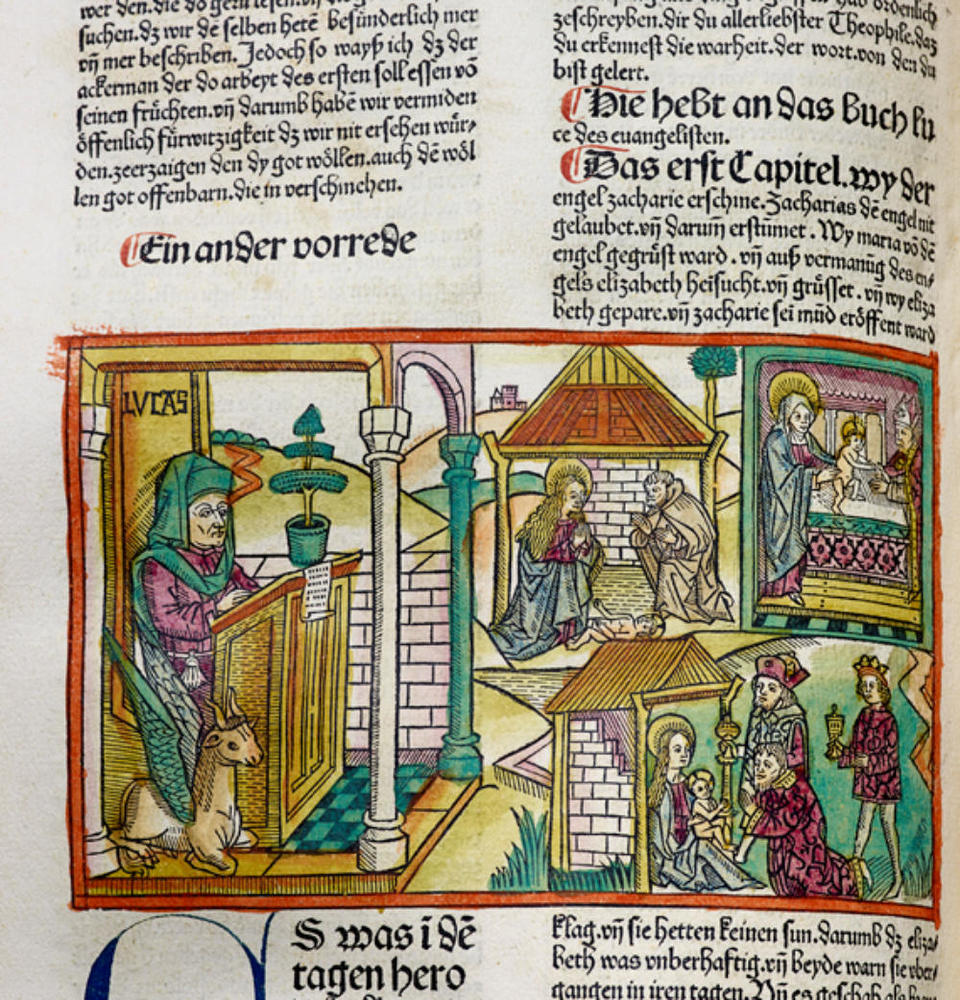 suchen.dz wir dē selben hetē besünderlich mer
vn̄ mer beschriben.Jedoch so wayß ich dz der
ackerman der do arbeyt des ersten soll essen vō
seinen früchten.vn̄ darumb habē wir vermiden
öffenlich fürwitzigkeit dz wir nit ersehen wür⸗
den.zeerzaigen den dy got wöllen.auch dē wöl
len got offenbarn.die in verschmehen.
Ein ander vorrede
zeschreyben.dir du allerliebster Theophile.daz
du erkennest die warheit.der wort.von den du
bist gelert.
Hie hebt an das buch lu
ce des euangelisten.
Das erst Capitel.wy der
engel zacharie erschine.Zacharias dē engel nit
gelaubet.vn̄ darum̄ erstūmet. Wy maria vō dē
engel gegrüst ward.vn̄ auß vermanūg des en⸗
gels elizabeth heisucht.vn̄ grüsset.vn̄ wy eliza
beth gepare.vn̄ zacharie sei mūd eröffent ward
LVCAS
S was ī dē
tagen hero
klag.vn̄ sie hetten keinen sun.darumb dz eliza⸗
beth was vnberhaftig.vn̄ beyde warn sie vber⸗
gangen in iren tagen.